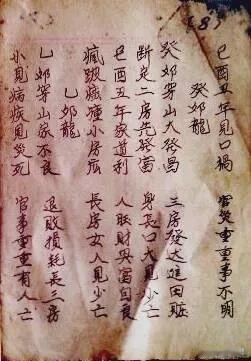 (8)
巳酉丑年見口禍 官災重重事不明
癸卯龍
癸卯穿山大發昌 三房發達進田
斷定二房先發富 身長口大見少亡
巳酉丑年家道利 人旺財興富自良
跛 小房 長房女人見少亡
乙卯龍
乙卯穿山家不良 退敗損耗長三房
小見病疾見災死 官事重重有人亡